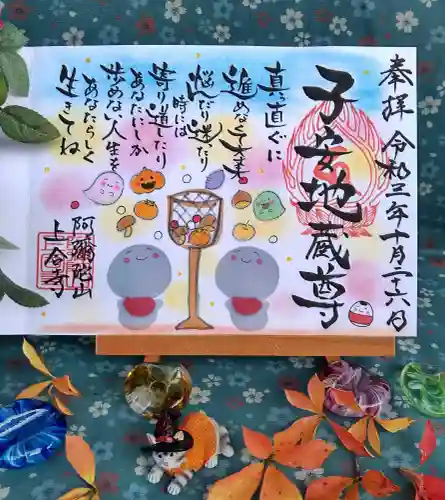 奉拝 令和三年十月二十六日
子安地蔵尊
真っ直ぐに
進めなくても
時には
悩んだり迷ったり
寄り道したり
あなたにしか
歩めない人生を
あなたらしく
生きてね
阿彌陀山